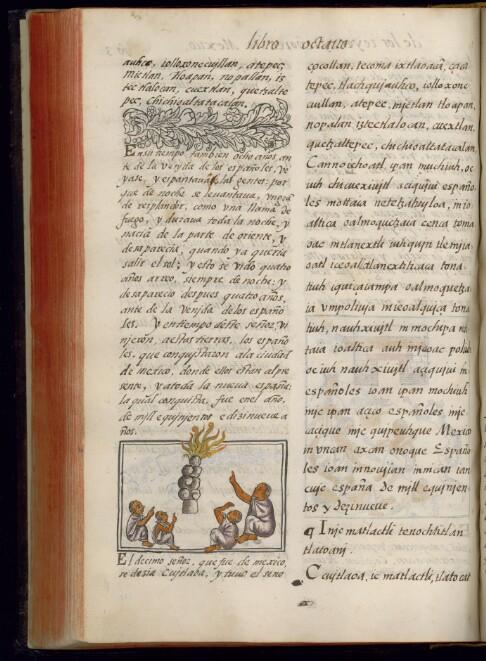 libro octauo
auhco, iolloxonecuillan, atepec,
mictlan, tloapan, nopallan, iz
tectlalocan, cuextlan, quetzalte
pec, chichioaltatacalan.
En su tiempo tambien ocho años, an
te de la venjda de los españoles, ve
yase, y espantauase las gentes: por
que de noche se leuantaua, vn gra
de resplandor, como vna llama de
fuego, y duraua toda la noche, y
nacia de la parte de oriente, y
desaparecia, quando ya queria
salir el sol; y esto se vido quatro
años arreo, siempre de noche: y
desaparecio despues quatro años,
ante de la venjda de los españo
les. Y en tiempo deste señor, vi
njeron, a estas tierras, los españo
les, que conqujstaron a la ciudad
de mexico, donde ellos estan al pre
sente, y a toda la nueva españa:
la qual conqujsta, fue en el año,
de mill e qujnjentos e diezinueve a
ños.
El decimo señor, que fue de mexico,
se dezia Cujtlaoa, y tuuo el seño
cocollan, tecoma ixtlaoacã, çaca
tepec, tlachqujauhco, iolloxone
cuillan, atepec, mjctlan tloapan,
nopalan iztectlalocan, cuextlan,
quetzaltepec, chichioaltatacalan.
Can no ichoatl ipan muchiuh, oc
iuh chicuexiujtl acizqujui españo
les mottaia netetzahujloia, mio
altica oalmoquetzaia cenca toma
oac in tlanextli iuhqujn tlemjia
oatl
tiuh, nauhxiujtl in mochipa mo
taia ioaltica auh inic oac poliuh
oc iuh nauhxiujtl acizqujui in
españoles ioan ipan mochiuh
inje ipan acico españoles inje
acique inje qujpeuhque Mexico
in vncan axan onoque Españo
les ioan in noujian injcan ian
cujc españa de mjll e qujnjen
tos y dezinueve.
¶ Inje matlactli tenochtitlan
tlatoanj.
Cujtlaoa, ic matlactli, tlatocat